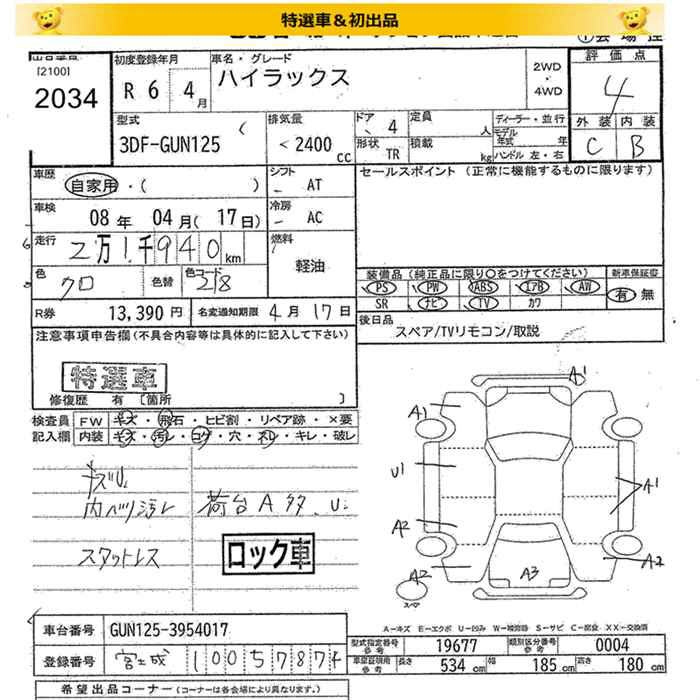 特選車＆初出品
[2100]
2034
初度登録年月
R 6 4 月
車名・グレード
ハイラックス
2WD
・
4WD
評価点
4
外装 内装
C B
型式
3DF-GUN125
排気量
< 2400 cc
ドア 4
形状 TR
定員 人
積載 kg
ディーラー・並行
モデル年式 年
ハンドル 左・右
車歴
自家用・( )
シフト
AT
セールスポイント (正常に機能するものに限ります)
車検
08 年 04 月( 17 日)
冷房
AC
走行
2万1千940 km
燃料
軽油
色
クロ
色替
色コード
218
装備品 (純正品に限り○をつけてください)
新車保証書
PS PW ABS エアB AW
SR ナビ TV カワ
有 無
R券 13,390 円
名変通知期限 4 月 17 日
後日品
スペア/TVリモコン/取説
注意事項申告欄 (不具合内容等は具体的に記入して下さい)
特選車
修復歴 有 [箇所 ]
検査員 FW キズ・飛石・ヒビ割・リペア跡・×要
記入欄 内装 キズ・汚レ・コゲ・穴・ネレ・キレ・破レ
内ヘツリ汚レ 荷台Aタタ、U
スタットレス
ロック車
A1
A1
U1
A1
A2
A2
A2
A3
スペア
A-キズ E-エクボ U-凹み W-補修跡 S-サビ C-腐食 XX-交換済
車台番号 GUN125-3954017
登録番号 宮士成 100 5 7874
型式指定番号
参考
19677
類別区分番号
参考
0004
車庫証明用
参考
長さ 534 cm
幅 185 cm
高さ 180 cm
希望出品コーナー (コーナーは各会場により異なります。)